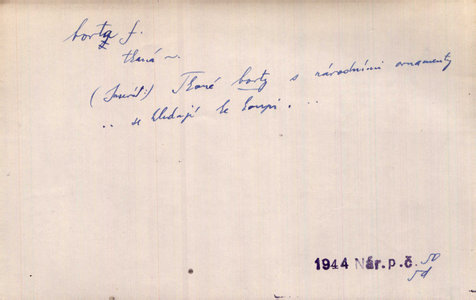 borta f.
tkaná ~.
(Inserát:) Tkané borty s národními ornamenty
.. se hledají ke koupi. ..
1944 Nár.p.č. 50
5d